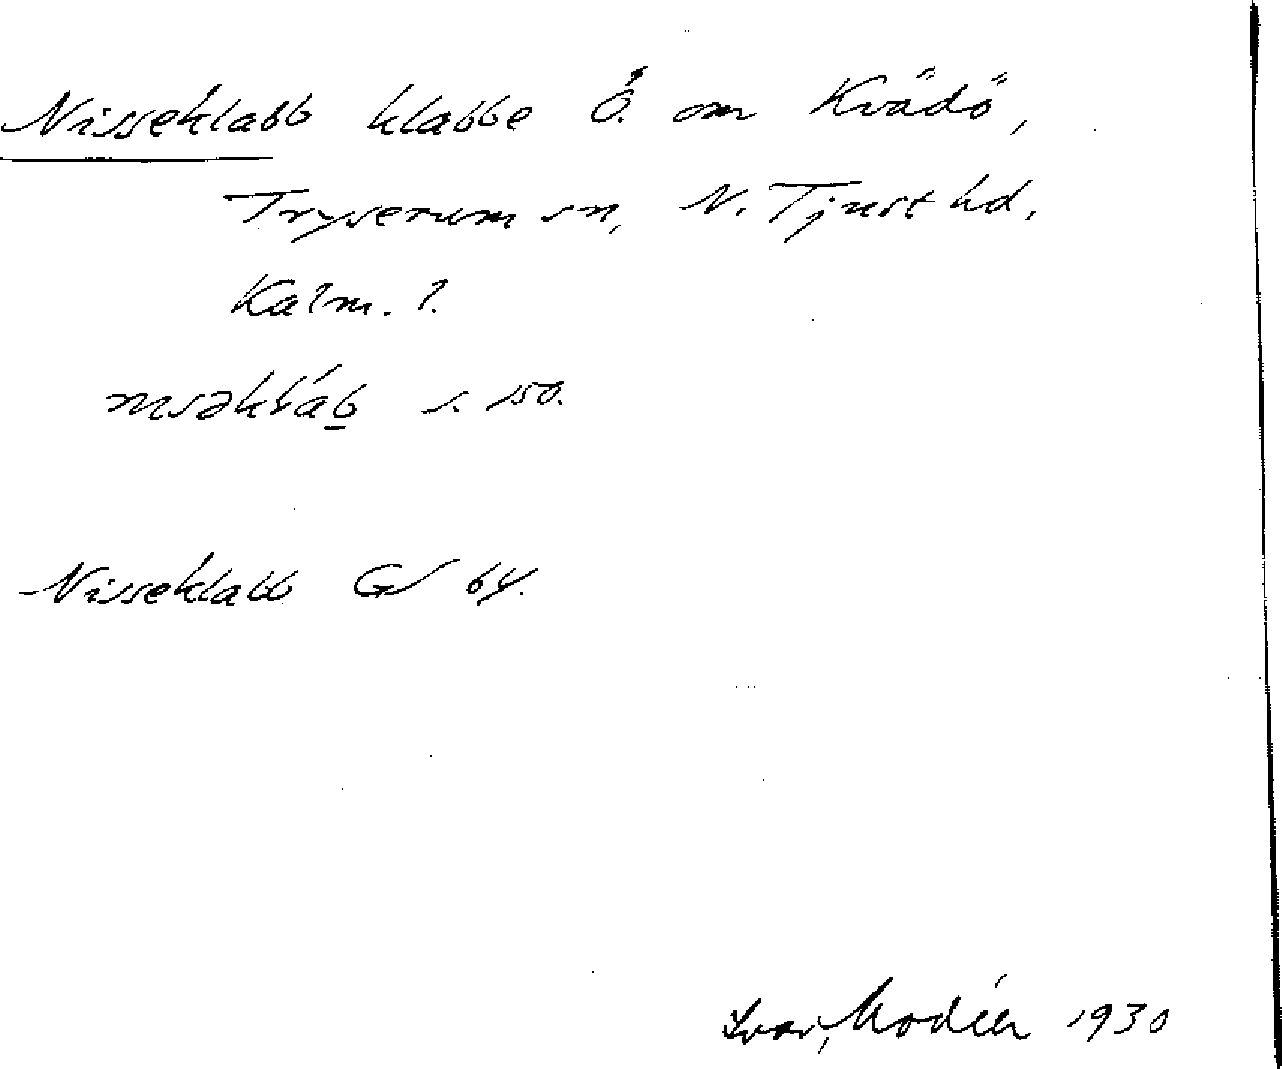 Nisseklabb klabbe Ö. om Kvädö,
Tryserum sn, N. Tjust hd.
Kalm. l.
s. 150.
Nisseklabb GS 64.
Ivar Modéer 1930